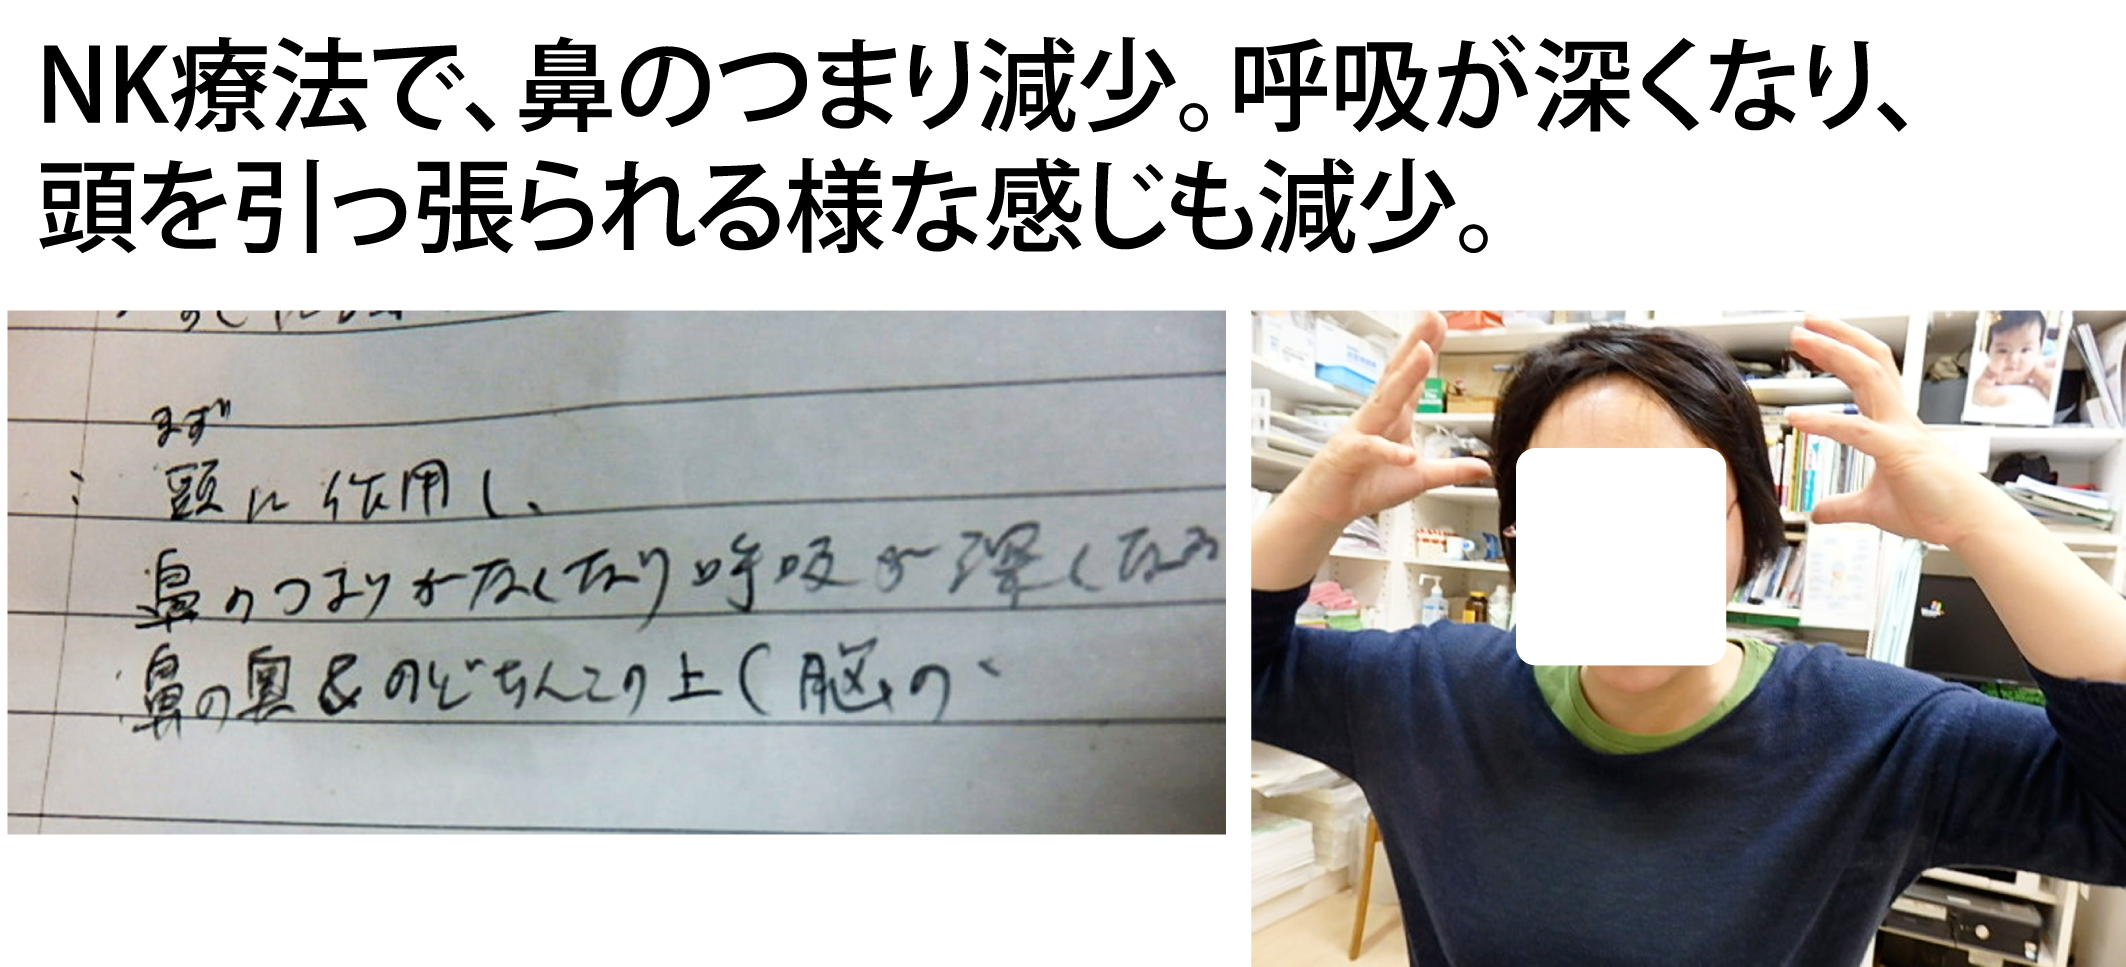 NK療法で、鼻のつまり減少。呼吸が深くなり、
頭を引っ張られる様な感じも減少。
まず
頭に作用し、
鼻のつまりがなくなり呼吸が深くなる
鼻の奥&のどちんこの上(脳の